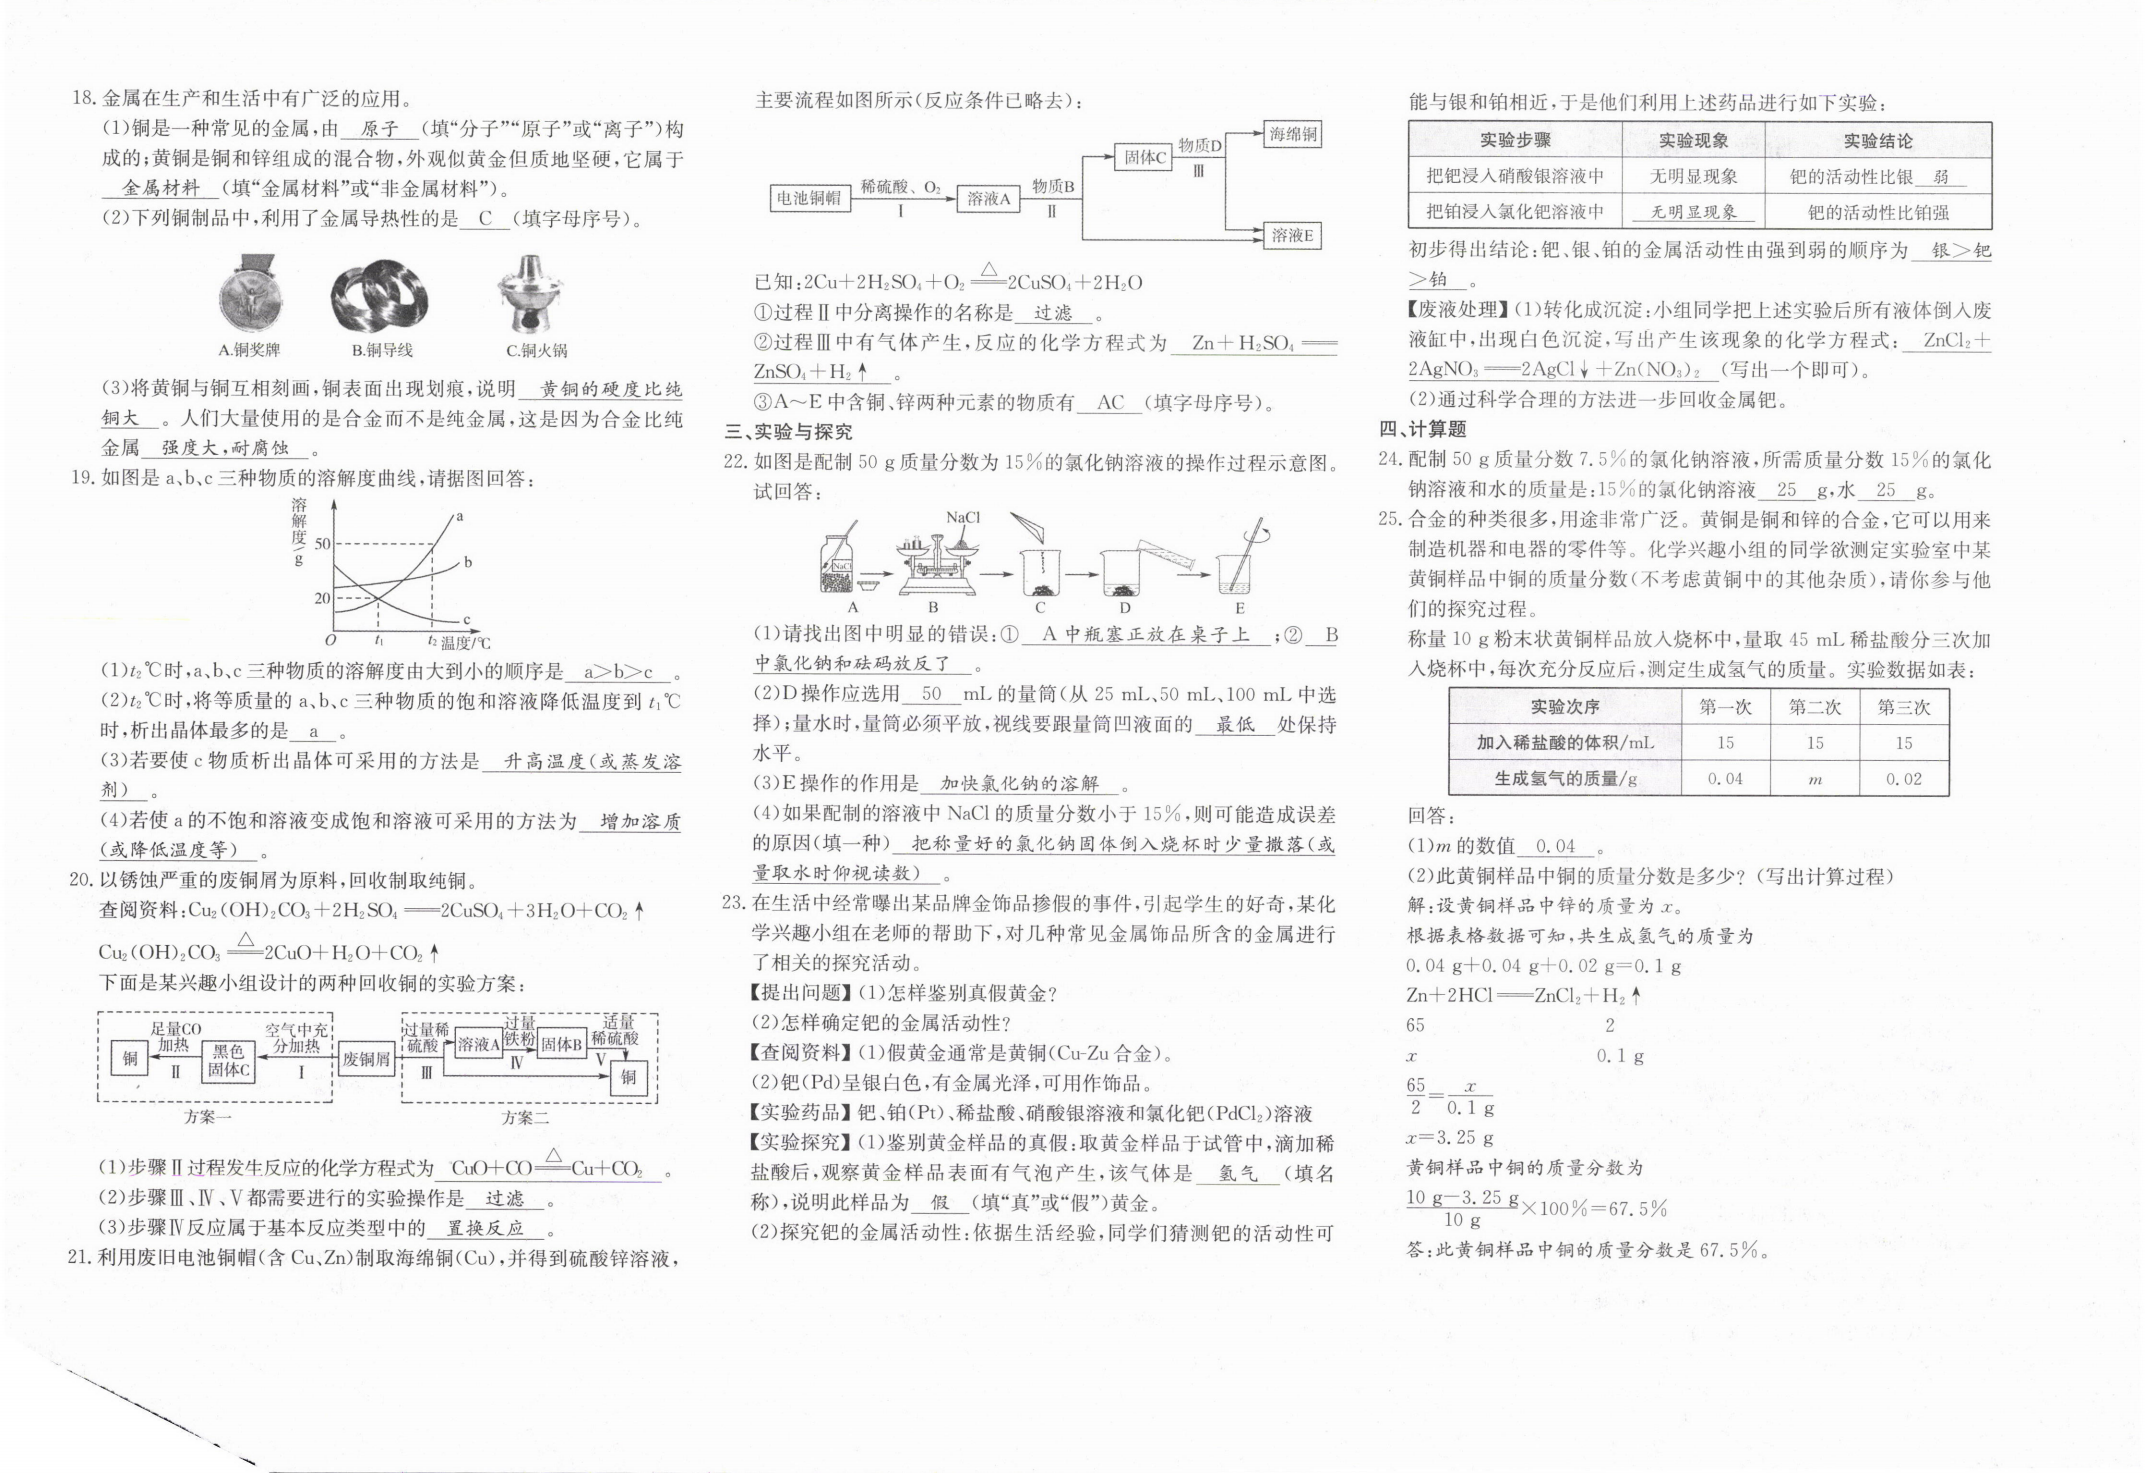 18. 金属在生产和生活中有广泛的应用。
(1)铜是一种常见的金属,由 原子 (填“分子”“原子”或“离子”)构
成的;黄铜是铜和锌组成的混合物,外观似黄金但质地坚硬,它属于
金属材料 (填“金属材料”或“非金属材料”)。
(2)下列铜制品中,利用了金属导热性的是 C (填字母序号)。
A.铜奖牌 B.铜导线 C.铜火锅
(3)将黄铜与铜互相刻画,铜表面出现划痕,说明 黄铜的硬度比纯
铜大 。人们大量使用的是合金而不是纯金属,这是因为合金比纯
金属 强度大,耐腐蚀 。
19. 如图是 a、b、c 三种物质的溶解度曲线,请据图回答:
溶解度/g
50
20
a
b
c
O t₁ t₂ 温度/℃
(1)t₂℃时,a、b、c 三种物质的溶解度由大到小的顺序是 a>b>c 。
(2)t₂℃时,将等质量的 a、b、c 三种物质的饱和溶液降低温度到 t₁℃
时,析出晶体最多的是 a 。
(3)若要使 c 物质析出晶体可采用的方法是 升高温度(或蒸发溶
剂) 。
(4)若使 a 的不饱和溶液变成饱和溶液可采用的方法为 增加溶质
(或降低温度等) 。
20. 以锈蚀严重的废铜屑为原料,回收制取纯铜。
查阅资料:Cu₂(OH)₂CO₃+2H₂SO₄══2CuSO₄+3H₂O+CO₂↑
Cu₂(OH)₂CO₃ △══2CuO+H₂O+CO₂↑
下面是某兴趣小组设计的两种回收铜的实验方案:
铜 足量CO 加热 Ⅱ 黑色固体C 空气中充分加热 Ⅰ 废铜屑 过量稀硫酸 Ⅲ 溶液A 过量铁粉 Ⅳ 固体B 适量稀硫酸 Ⅴ 铜
方案一 方案二
(1)步骤Ⅱ过程发生反应的化学方程式为 CuO+CO △══Cu+CO₂ 。
(2)步骤Ⅲ、Ⅳ、Ⅴ都需要进行的实验操作是 过滤 。
(3)步骤Ⅳ反应属于基本反应类型中的 置换反应 。
21. 利用废旧电池铜帽(含 Cu、Zn)制取海绵铜(Cu),并得到硫酸锌溶液,
主要流程如图所示(反应条件已略去):
电池铜帽 稀硫酸、O₂ Ⅰ 溶液A 物质B Ⅱ 固体C 物质D Ⅲ 海绵铜
溶液E
已知:2Cu+2H₂SO₄+O₂ △══2CuSO₄+2H₂O
①过程Ⅱ中分离操作的名称是 过滤 。
②过程Ⅲ中有气体产生,反应的化学方程式为 Zn+H₂SO₄══
ZnSO₄+H₂↑ 。
③A～E 中含铜、锌两种元素的物质有 AC (填字母序号)。
三、实验与探究
22. 如图是配制 50 g 质量分数为 15%的氯化钠溶液的操作过程示意图。
试回答:
NaCl NaCl
A B C D E
(1)请找出图中明显的错误:① A 中瓶塞正放在桌子上 ;② B
中氯化钠和砝码放反了 。
(2)D 操作应选用 50 mL 的量筒(从 25 mL、50 mL、100 mL 中选
择);量水时,量筒必须平放,视线要跟量筒凹液面的 最低 处保持
水平。
(3)E 操作的作用是 加快氯化钠的溶解 。
(4)如果配制的溶液中 NaCl 的质量分数小于 15%,则可能造成误差
的原因(填一种) 把称量好的氯化钠固体倒入烧杯时少量撒落(或
量取水时仰视读数) 。
23. 在生活中经常曝出某品牌金饰品掺假的事件,引起学生的好奇,某化
学兴趣小组在老师的帮助下,对几种常见金属饰品所含的金属进行
了相关的探究活动。
【提出问题】(1)怎样鉴别真假黄金?
(2)怎样确定钯的金属活动性?
【查阅资料】(1)假黄金通常是黄铜(Cu-Zu 合金)。
(2)钯(Pd)呈银白色,有金属光泽,可用作饰品。
【实验药品】钯、铂(Pt)、稀盐酸、硝酸银溶液和氯化钯(PdCl₂)溶液
【实验探究】(1)鉴别黄金样品的真假:取黄金样品于试管中,滴加稀
盐酸后,观察黄金样品表面有气泡产生,该气体是 氢气 (填名
称),说明此样品为 假 (填“真”或“假”)黄金。
(2)探究钯的金属活动性:依据生活经验,同学们猜测钯的活动性可
能与银和铂相近,于是他们利用上述药品进行如下实验:
实验步骤 实验现象 实验结论
把钯浸入硝酸银溶液中 无明显现象 钯的活动性比银 弱
把铂浸入氯化钯溶液中 无明显现象 钯的活动性比铂强
初步得出结论:钯、银、铂的金属活动性由强到弱的顺序为 银>钯
>铂 。
【废液处理】(1)转化成沉淀:小组同学把上述实验后所有液体倒入废
液缸中,出现白色沉淀,写出产生该现象的化学方程式: ZnCl₂+
2AgNO₃══2AgCl↓+Zn(NO₃)₂ (写出一个即可)。
(2)通过科学合理的方法进一步回收金属钯。
四、计算题
24. 配制 50 g 质量分数 7.5%的氯化钠溶液,所需质量分数 15%的氯化
钠溶液和水的质量是:15%的氯化钠溶液 25 g,水 25 g。
25. 合金的种类很多,用途非常广泛。黄铜是铜和锌的合金,它可以用来
制造机器和电器的零件等。化学兴趣小组的同学欲测定实验室中某
黄铜样品中铜的质量分数(不考虑黄铜中的其他杂质),请你参与他
们的探究过程。
称量 10 g 粉末状黄铜样品放入烧杯中,量取 45 mL 稀盐酸分三次加
入烧杯中,每次充分反应后,测定生成氢气的质量。实验数据如表:
实验次序 第一次 第二次 第三次
加入稀盐酸的体积/mL 15 15 15
生成氢气的质量/g 0.04 m 0.02
回答:
(1)m 的数值 0.04 。
(2)此黄铜样品中铜的质量分数是多少?(写出计算过程)
解:设黄铜样品中锌的质量为 x。
根据表格数据可知,共生成氢气的质量为
0.04 g+0.04 g+0.02 g=0.1 g
Zn+2HCl══ZnCl₂+H₂↑
65 2
x 0.1 g
65/2=x/0.1 g
x=3.25 g
黄铜样品中铜的质量分数为
(10 g−3.25 g)/10 g×100%=67.5%
答:此黄铜样品中铜的质量分数是 67.5%。